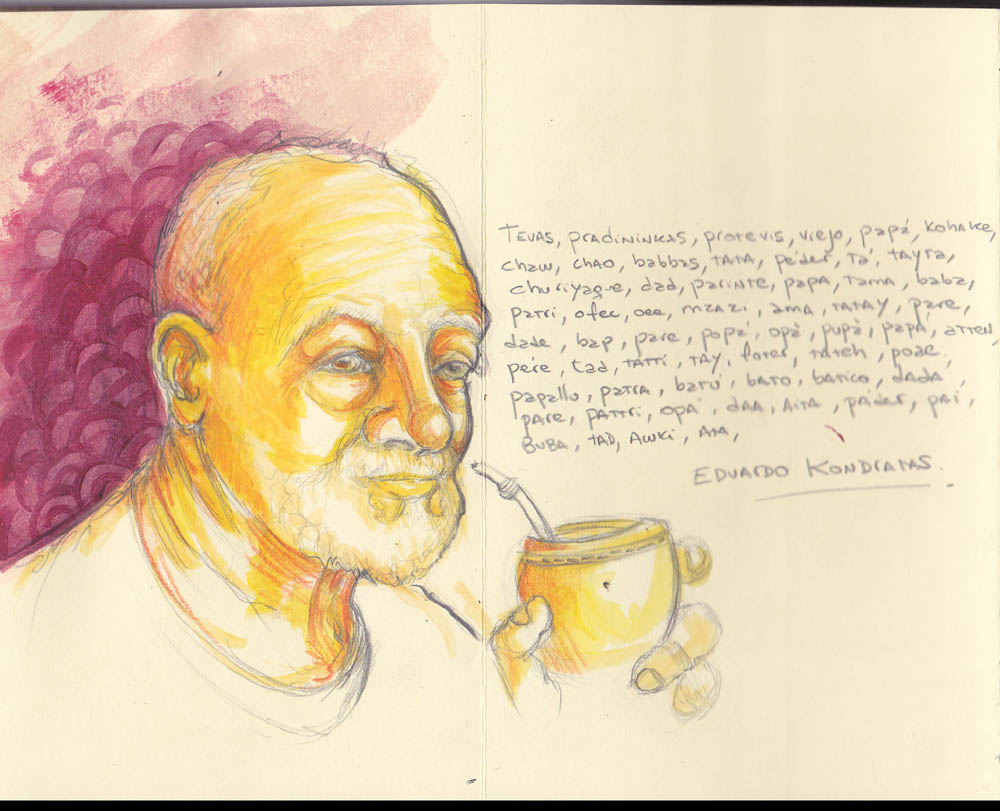 TEVAS, PRADININKAS, PROTEVIS, VIEJO, papá, KOHAKE,
chaw, CHAO, babbas, TATA, peder, TA', TAYTA,
churiyague, dad, parinte, papa, TAMA, baba,
patri, ofec, oee, MZAZI, AMA, TATAY, pare,
dade, bap, pare, popà, opà, pupà, papa, atten,
pére, tad, TATTI, TAY, foter, tateh, poae,
papallu, patra, batu, bato, batico, dada,
pare, pattri, opa, daa, Aita, pader, pai,
BUBA, TAD, AWKI, ATA,
EDUARDO KONDRATAS.